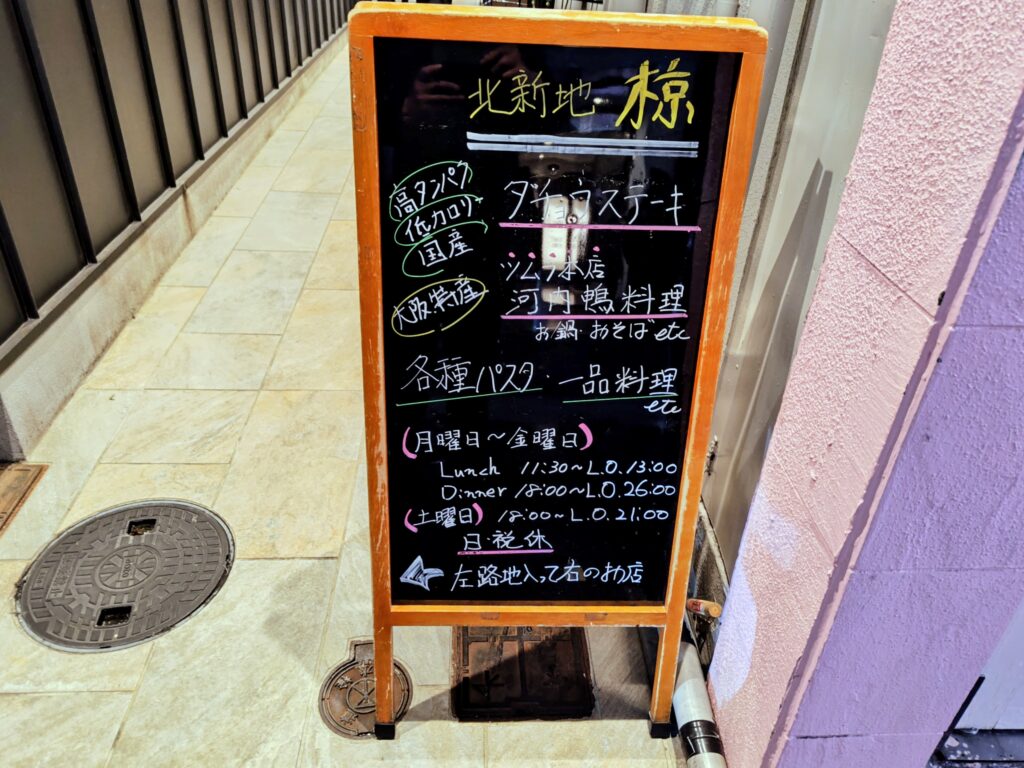 北新地 椋
高タンパク
低カロリー
国産
ダチョウステーキ
ツムラ本店
大阪特産
河内鴨料理
お鍋・おそばetc
各種パスタ・一品料理
etc
(月曜日〜金曜日)
Lunch 11:30〜L.O.13:00
Dinner 18:00〜L.O.26:00
(土曜日) 18:00〜L.O.21:00
日・祝休
左路地入って右のお店